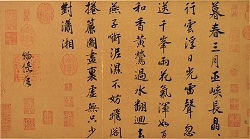 暮春三月巫峽長皛
行雲浮日光雷聲忽
送千峯雨花氣渾如百
和香黃鶯過水翻迴去
燕子銜泥濕不妨飛閣
捲簾圖畫裏虛無只少
對瀟湘